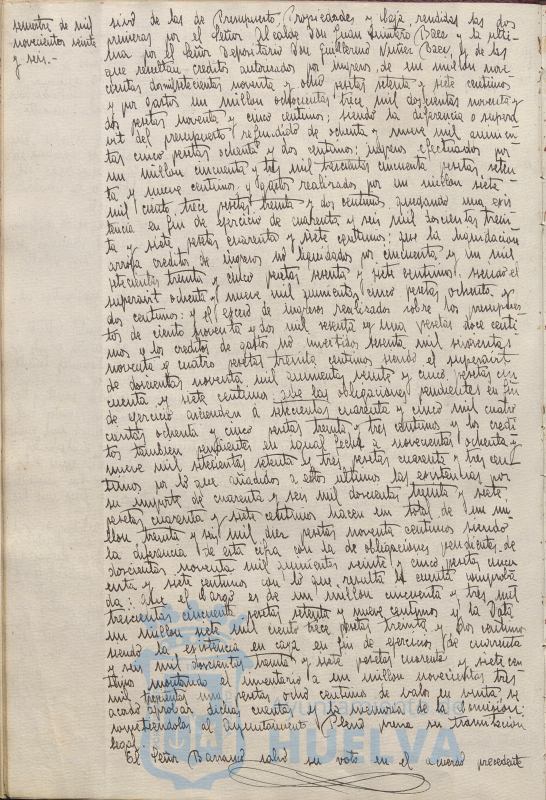 semestre de mil
novecientos veinte
y seis.-
sivo de las de Presupuesto, Propiedades y Caja rendidas las dos
primeras por el Señor Alcalde Don Juan Quintero Báez y la últi-
ma por el Señor Depositario Don Guillermo Núñez Baez, y de las
que resultan: créditos autorizados por ingresos, de un millon nove-
cientas dos mil setecientas noventa y ocho pesetas setenta y siete centimos
y por gastos un millon ochocientas trece mil doscientas noventa y
dos pesetas noventa y cinco centimos; siendo la diferencia o supera-
vit del presupuesto refundido de ochenta y nueve mil quinien-
tas cinco pesetas ochenta y dos centimos: ingresos efectuados por
un millon cincuenta y tres mil trescientas cincuenta pesetas, seten-
ta y nueve centimos, y gastos realizados por un millon siete
mil ciento trece pesetas treinta y dos centimos, quedando una exis-
tencia en fin de ejercicio de cuarenta y seis mil doscientas trein-
ta y siete pesetas cuarenta y siete centimos: que la liquidacion
arroja creditos de ingresos no liquidados por cincuenta y un mil
setecientas treinta y cinco pesetas sesenta y siete centimos, siendo el
superavit ochenta y nueve mil quinientas cinco pesetas ochenta y
dos centimos; y el exceso de ingresos realizados sobre los presupues-
tos de ciento noventa y dos mil sesenta y una pesetas doce centi-
mos y los creditos de gastos no invertidos sesenta mil seiscientas
noventa y cuatro pesetas treinta centimos siendo el superavit
de doscientas noventa mil quinientas veinte y cinco pesetas cin-
cuenta y siete centimos: que las obligaciones pendientes en fin
de ejercicio ascienden a setecientas cuarenta y cinco mil cuatro-
cientas ochenta y cinco pesetas treinta y tres centimos y los credi-
tos tambien pendientes en igual fecha a novecientas ochenta y
nueve mil setecientas setenta y tres pesetas cuarenta y tres cen-
timos por lo que añadidos a estos ultimos las existencias por
su importe de cuarenta y seis mil doscientas treinta y siete
pesetas cuarenta y siete centimos hacen un total de un mi-
llon treinta y seis mil diez pesetas noventa centimos siendo
la diferencia de esta cifra con la de obligaciones pendientes de
doscientas noventa mil quinientas veinte y cinco pesetas cincu-
enta y siete centimos con lo que resulta la cuenta comproba-
da: que el Cargo es de un millon cincuenta y tres mil
trescientas cincuenta pesetas setenta y nueve centimos y la Data
un millon siete mil ciento trece pesetas treinta y dos centimos
siendo la existencia en caja en fin de ejercicio de cuarenta
y seis mil doscientas treinta y siete pesetas cuarenta y siete cen-
timos montando el inventario a un millon novecientas tres
mil trescientas una pesetas ocho centimos de valor en venta, se
acordó aprobar dichas cuentas y la memoria de la Comision
sometiendolas al Ayuntamiento Pleno previa su tramitacion
legal.
El Señor Barranco salvó su voto en el acuerdo precedente
Ayuntamiento de
HUELVA